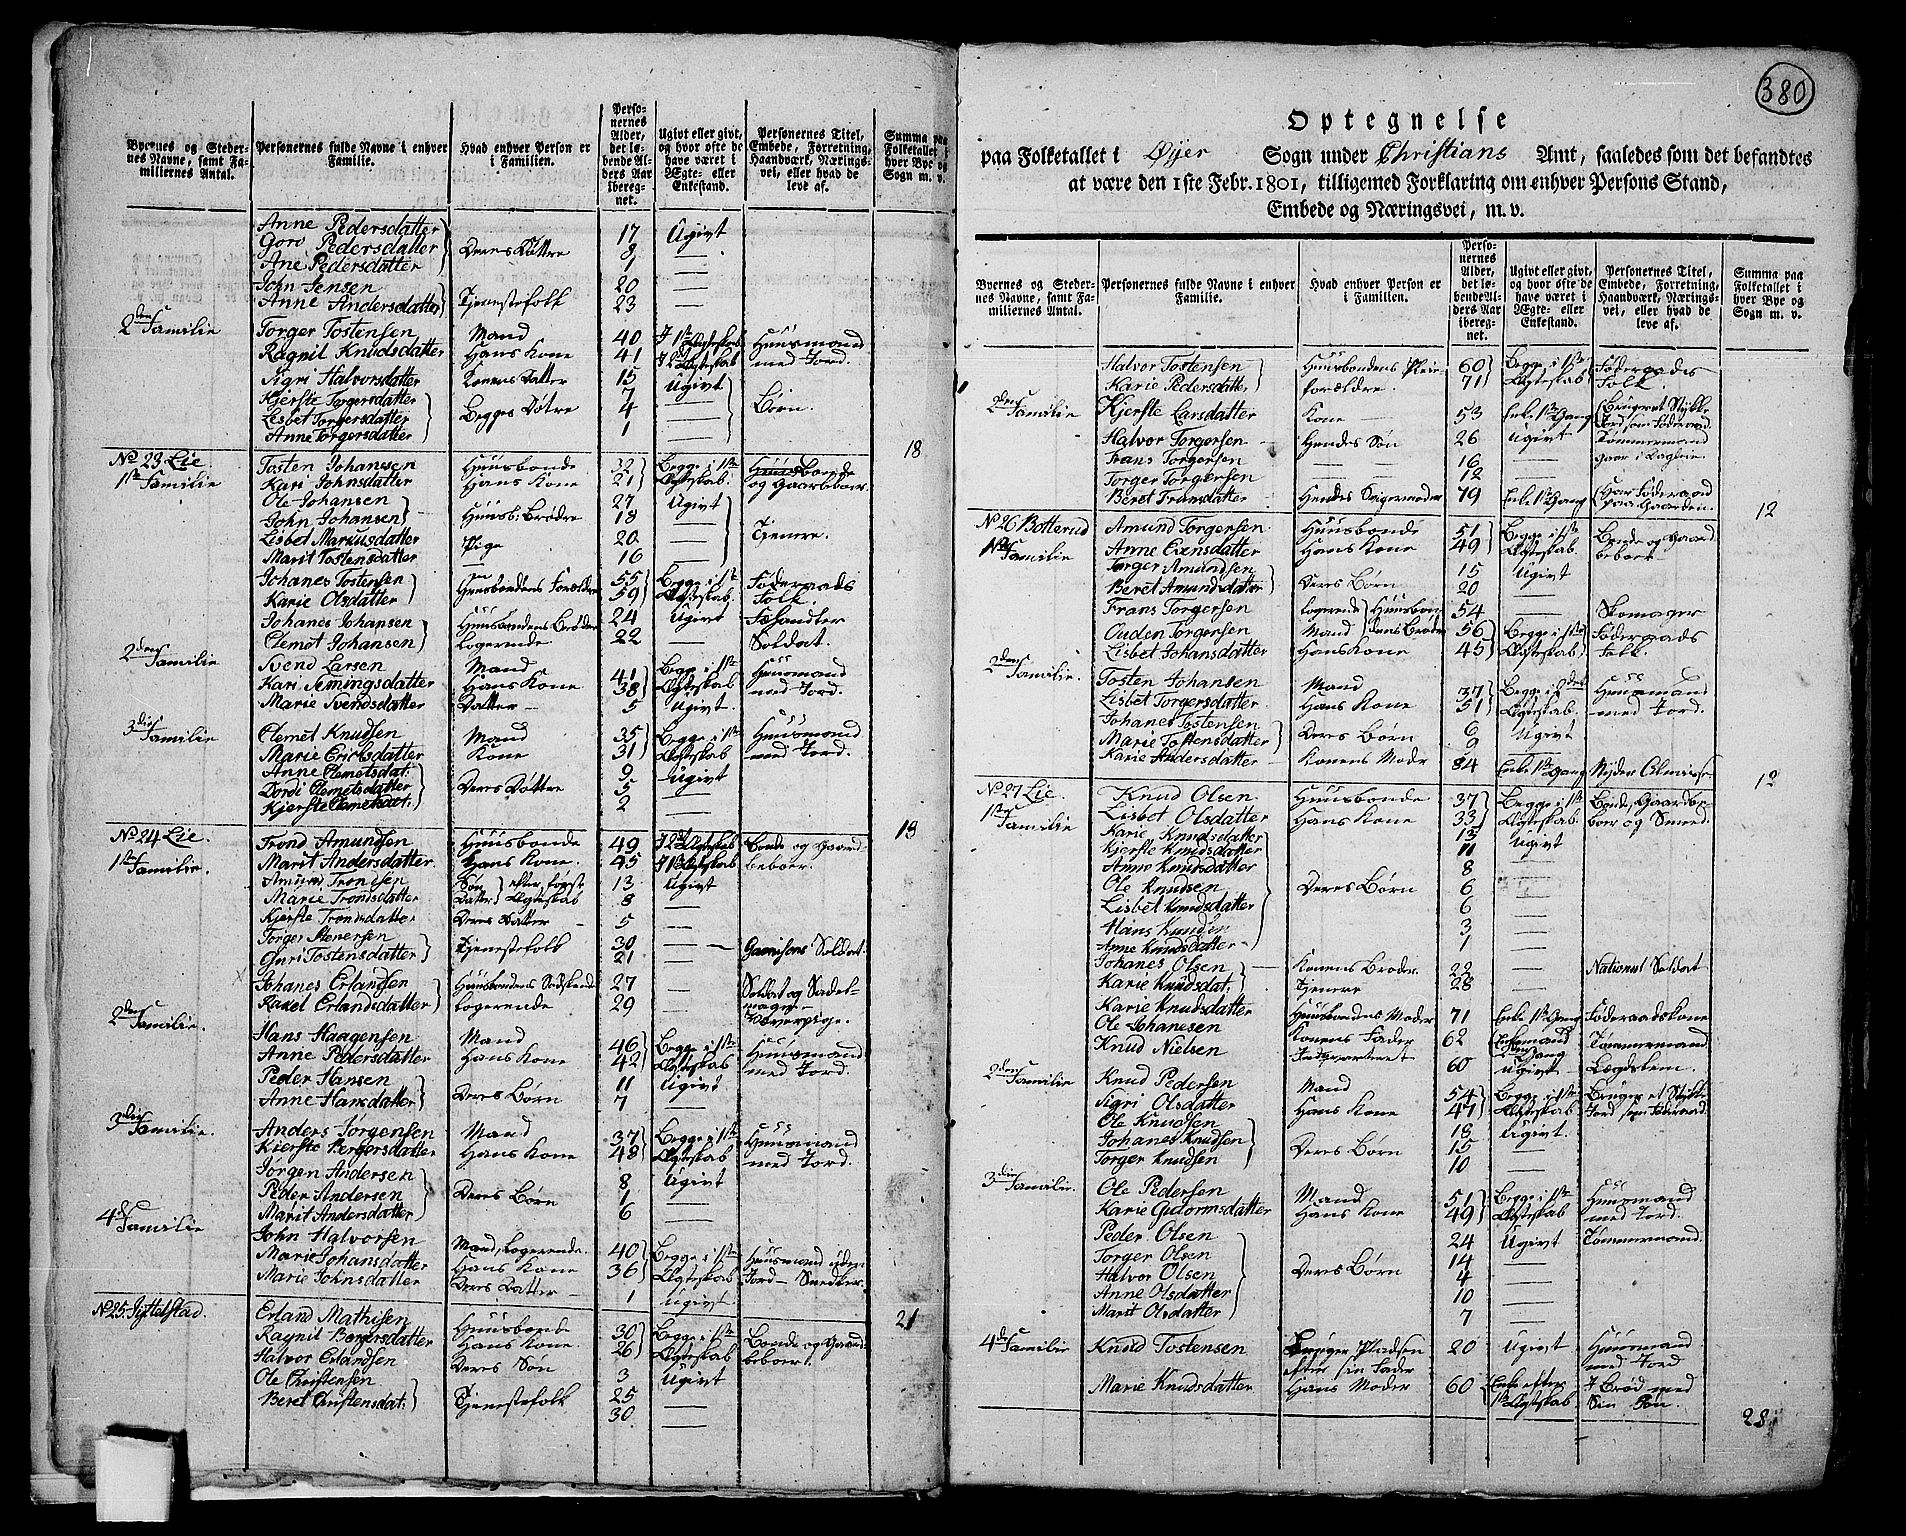 Byernes og Steder-
nes Navne, samt Fa-
miliernes Antal.
Personernes fulde Navne i enhver
Familie.
Hvad enhver Person er
i Familien.
Perso-
nernes
Alder,
det le-
bende Al-
ders Aar
iberegnet.
Ugivt eller givt,
og hvor ofte de
have været i
Ægte- eller
Enkestand.
Personernes Titel,
Embede, Forretning,
Haandværk, Nærings-
vei, eller hvad de
leve af.
Summa paa
Folketallet i
hver Bye og
Sogn m. v.
Anne Pedersdatter 17 Ugivt
Goro Pedersdatter Deres Døttre 8 —
Ane Pedersdatter 1 —
John Jensen 20 —
Anne Andersdatter Tjenestefolk 23 —
2den Familie Torger Tostensen Mand 40 I 1ste Ægteskab Huusmand
Ragnil Knudsdatter Hans Kone 41 I 2 Ægteskab med Jord.
Sigri Halvorsdatter Konens Datter 15 Ugivt
Kjerste Torgersdatter 7 —
Lisbet Torgersdatter Begges Døtre 4 — Børn.
Anne Torgersdatter 1 —
18
No 23 Lie. Tosten Johansen Huusbonde 32 Begge i 1ste Bonde
1ste Familie Kari Johnsdatter Hans Kone 21 Ægteskab. og Gaardbeboer.
Ole Johansen 27 Ugivt
John Johansen Huusb: Brødre 18 —
Lisbet Markusdatter Pige 20 — Tjenere.
Marit Tostensdatter — 16 —
Johanes Tostensen Huusbondens Forældre 55 Begge i 1ste Føderaads
Karie Olsdatter 59 Ægteskab. Folk.
Johanes Johansen Huusbondens Brødre 24 Ugivt
Clemet Johansen Logerende 22 — Soldat.
2den Familie Svend Larsen Mand 41 Begge i 1ste Huusmand
Kari Semingsdatter Hans Kone 38 Ægteskab med Jord.
Marie Svendsdatter Datter 5 Ugivt.
3die Familie Clemet Knudsen Mand 35 Begge i 1ste Huusmand
Marie Erichsdatter Kone 31 Ægteskab med Jord.
Anne Clemetsdat: 9 Ugivt
Dordi Clemetsdatter Deres Døttre 5 —
Kjerste Clemetsdat: 2 —
18
No 24 Lie. Trond Amundsen Huusbonde 49 I 2det Ægteskab Bonde og Gaard
1ste Familie. Marit Andersdatter Hans Kone. 45 I 1ste Ægteskab beboer.
Amund Trondsen Søn efter første 13 Ugivt
Marie Trondsdatter Datter Ægteskab 8 —
Kjerste Trondsdatter Deres Datter 5 —
Torger Stenersen Tjenestefolk 30 — Garnisons Soldat.
Guri Tostensdatter 21 —
Johanes Erlandsen Huusbondens Sødskend 27 — Soldat og Sadel-
mager
Raxel Erlandsdatter Logerende 29 — Væverpige.
2den Familie. Hans Haagensen Mand 46 Begge i 1ste Huusmand
Anne Pedersdatter Hans Kone 42 Ægteskab med Jord.
Peder Hansen 11 Ugivt
Anne Hansdatter Deres Børn 7 —
3die Familie. Anders Jørgensen Mand 37 Begge i 1ste Huusmand
Kierste Børgersdatter Hans Kone 48 Ægteskab med Jord.
Jørgen Andersen 8 Ugivt
Peder Andersen Deres Børn 1 —
Marit Andersdatter 6 —
4de Familie John Halvorsen Mand, Logerende 40 Begge i 1ste Huusmand uden
Marie Johansdatter Hans Kone 36 Ægteskab Jord —
Marie Johnsdatter Deres Datter 1 Ugivt
21
No 25. Erland Mathisen Huusbonde 30 Begge i 1ste Bonde og Gaard
Ragnil Børgersdatter Hans Kone. 26 Ægteskab beboer.
Halvor Erlandsen Deres Søn 3 Ugivt
Ole Christensen 25 —
Beret Christensdat: Tjenestefolk 30 —
380
Optegnelse
paa Folketallet i Øyer Sogn under Christians Amt, saaledes som det befandtes
at være den 1ste Febr. 1801, tilligemed Forklaring om enhver Persons Stand,
Embede og Næringsvei, m. v.
Byernes og Steder-
nes Navne, samt Fa-
miliernes Antal.
Personernes fulde Navne i enhver
Familie.
Hvad enhver Person er
i Familien.
Perso-
nernes
Alder,
det le-
bende Al-
ders Aar
iberegnet.
Ugivt eller givt,
og hvor ofte de
have været i
Ægte- eller
Enkestand.
Personernes Titel,
Embede, Forretning,
Haandværk, Nærings-
vei, eller hvad de
leve af.
Summa paa
Folketallet i
hver Bye og
Sogn m. v.
Halvor Tostensen Huusbondens Pleie 60 Begge i 1ste Føderaads
Karie Pedersdatter forældre. 71 Ægteskab Folk.
2den Familie Kjerste Larsdatter Kone 53 Enke 1ste Gang Bruger et Stykke
Jord som Føderaad
Halvor Torgersen Hendes Søn 26 Ugivt Tømmermand
Frans Torgersen — 16 — gaar i Dagleie.
Torger Torgersen — 12 —
Beret Fransdatter Hendes Svigermoder 79 Enke 1ste Gang Har Føderaad
paa Gaarden.
12
No 26 Botterud Amund Torgersen Huusbonde 51 Begge i 1ste Bonde og Gaard
1ste Familie Anne Evensdatter Hans Kone 49 Ægteskab. beboer
Torger Amundsen 15 Ugivt
Beret Amundsdatter Deres Børn 20 —
Frans Torgersen Logerende Huusbon- 54 — Skomager
Ouden Torgersen Mand dens Brødre 56 Begge i 1ste Føderaads
Lisbet Johansdatter Hans Kone 45 Ægteskab Folk.
2den Familie. Tosten Johansen Mand 37 Begge i 2det Huusmand
Lisbet Torgersdatter Hans Kone 51 Ægteskab. med Jord.
Johanes Tostensen 6 Ugivt
Marie Tostensdatter Deres Børn 9 —
Karie Andersdatter Konens Moder 84 Enke 1ste Gang Nyder Almisse
12
No 27 Lie Knud Olsen Huusbonde 37 Begge i 1ste Bonde, Gaardbe-
1ste Familie Lisbet Olsdatter Hans Kone 33 Ægteskab. boer og Smed.
Karie Knudsdatter 13 Ugivt
Kjerste Knudsdatter 11 —
Anne Knudsdatter 8 —
Ole Knudsen Deres Børn 6 —
Lisbet Knudsdatter 6 —
Hans Knudsen 3 —
Anne Knudsdatter 1 —
Johanes Olsen Konens Broder 22 — National Soldat
Karie Knudsdat: Tjenere 28 —
Karie Knudsdatter Huusbondens Moder 71 Enke 1ste Gang Føderaadskone
Ole Johanesen Konens Fader 62 Enkemand Gang Tømmermand.
Knud Nielsen Indqvarteret 60 Ugivt Lægdslem.
2den Familie Knud Pedersen Mand 54 Begge i 1ste Bruger et Stykke
Sigri Olsdatter Hans Kone 47 Ægteskab Jord som Føderaad.
Ole Knudsen 18 Ugivt.
Johanes Knudsen Deres Børn 15 —
Torger Knudsen 10 —
3die Familie. Ole Pedersen Mand 51 Begge i 1ste Huusmand
Karie Gudormsdatter Hans Kone 49 Ægteskab med Jord.
Peder Olsen 24 Ugivt Tømmermand.
Torger Olsen 14 —
Halvor Olsen Deres Børn 4 —
Anne Olsdatter 10 —
Marit Olsdatter 7 —
4de Familie Knud Tostensen Bruger Pladsen 20 Ugivt Huusmand
efter sin Fader med Jord
Marie Knudsdatter Hans Moder 60 Enke efter I Brød med
1ste Ægteskab Sin Søn.
28